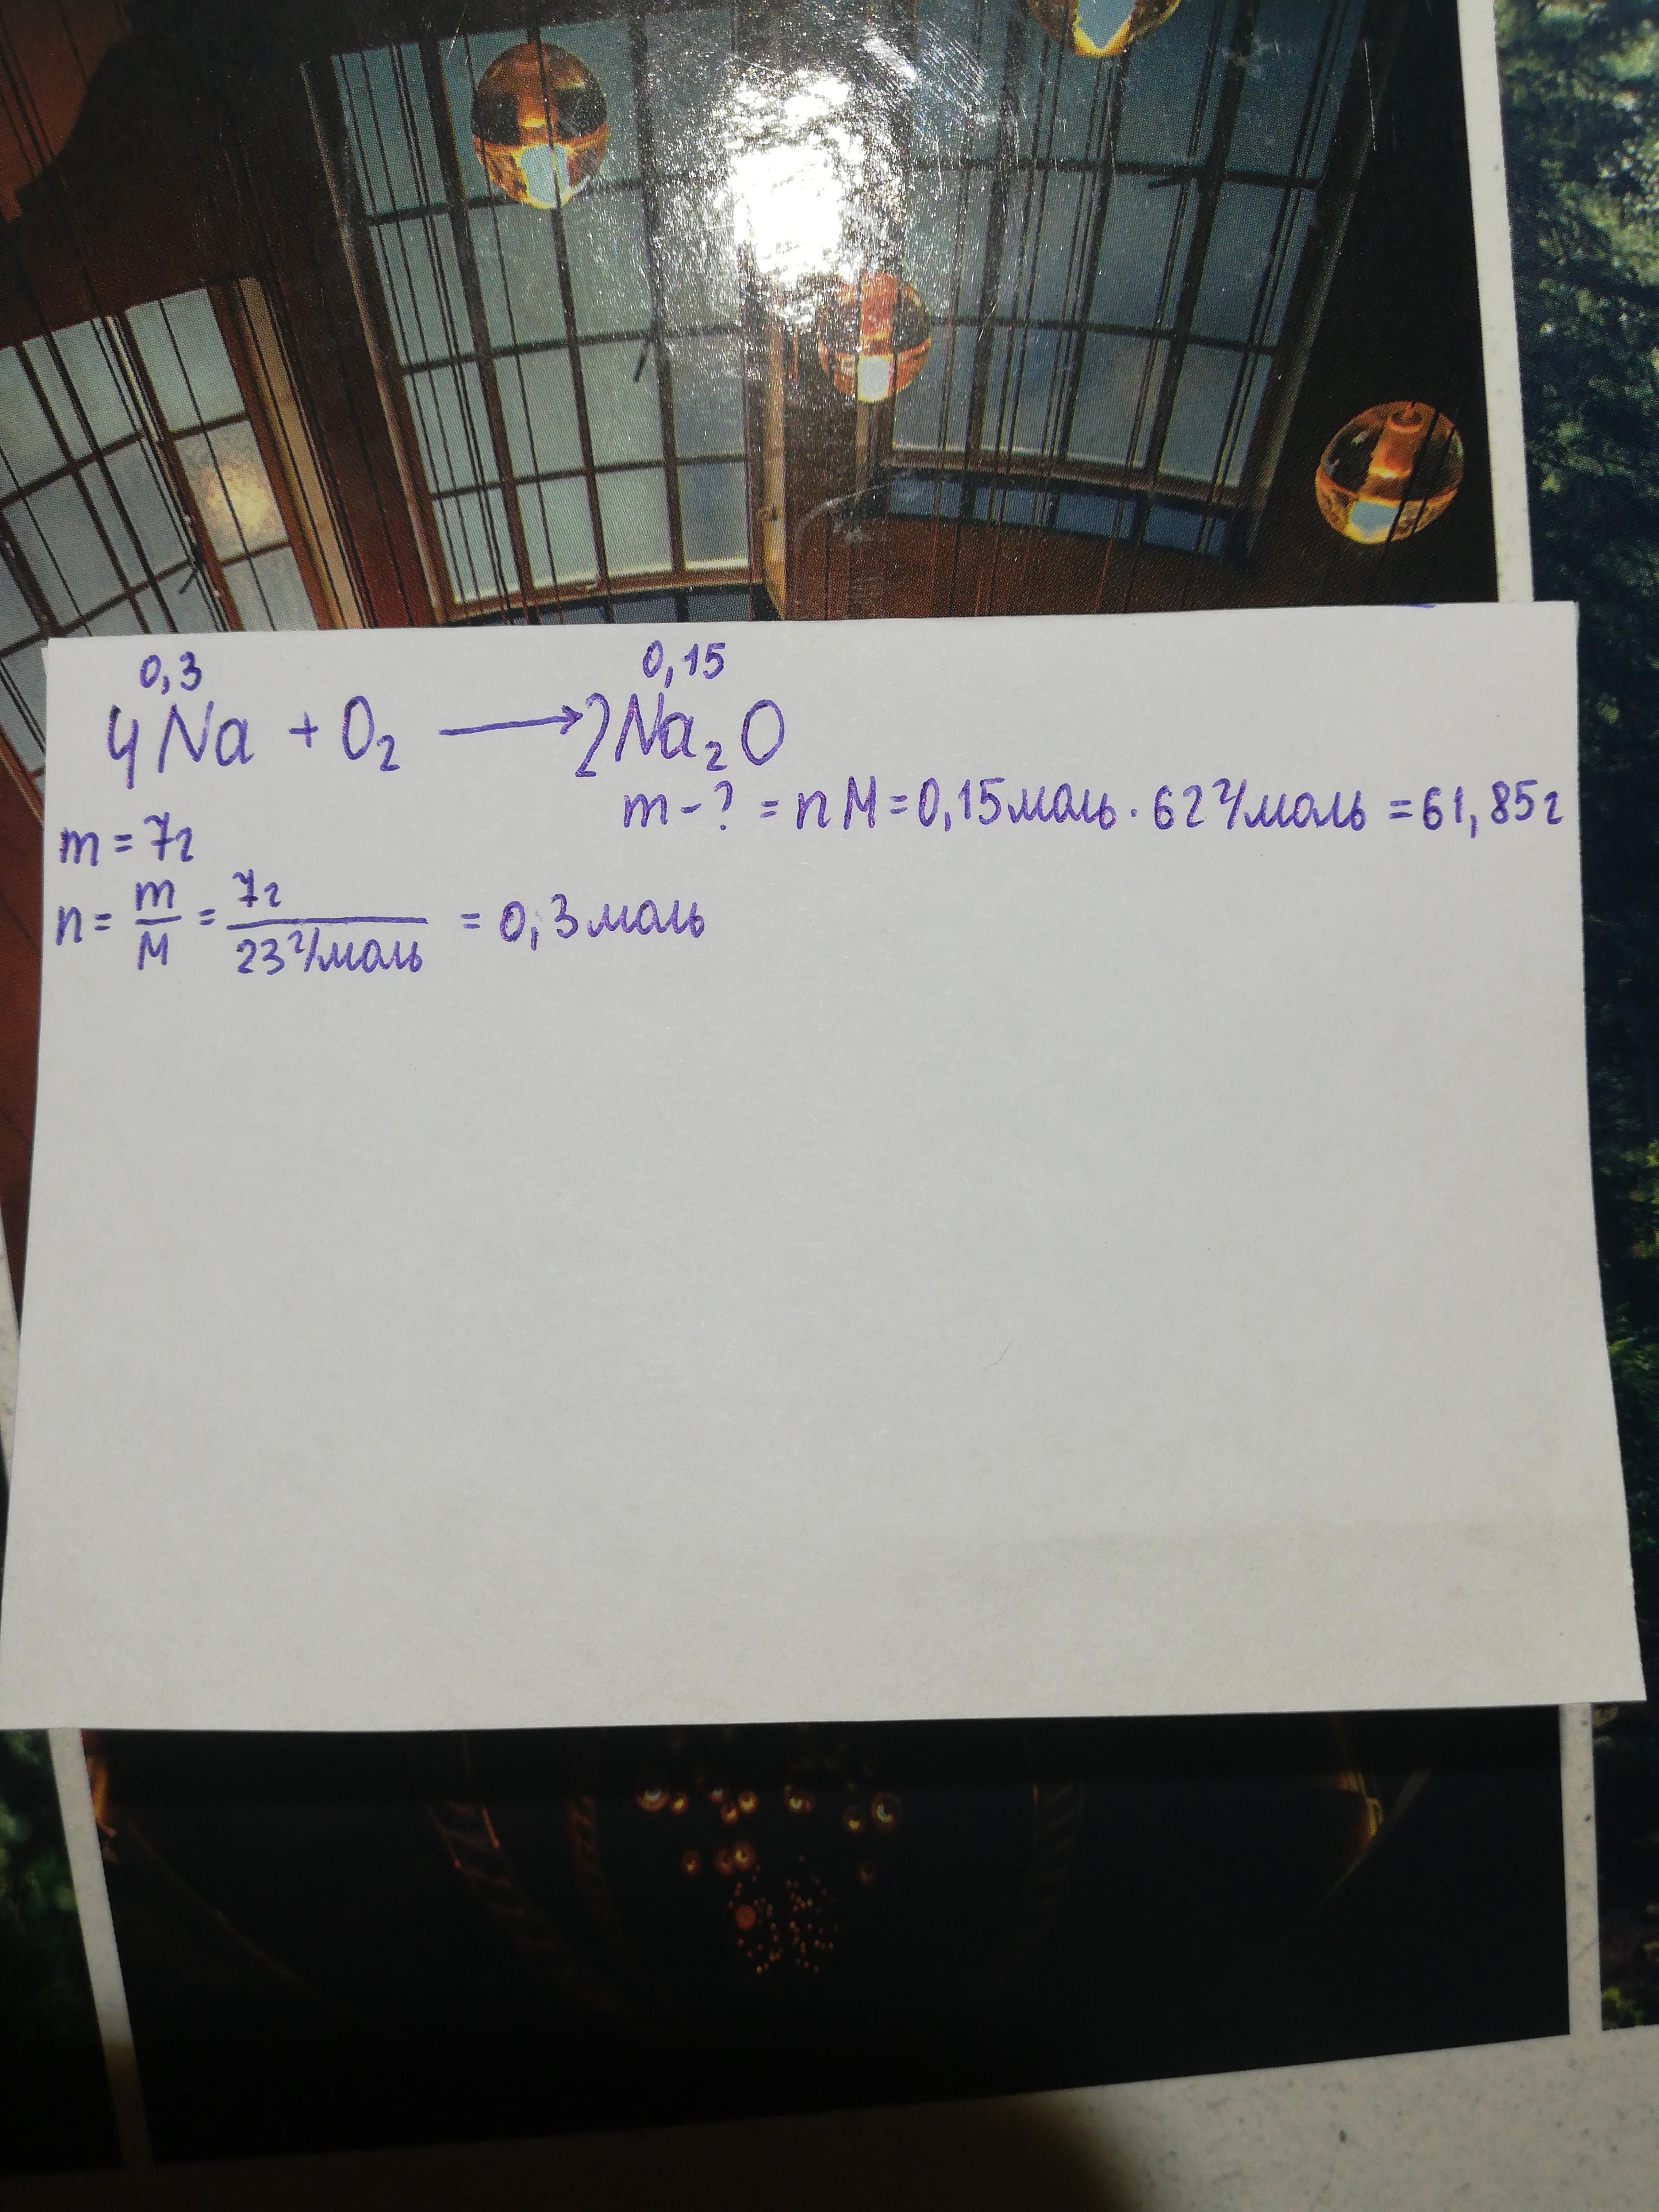 0,3 0,15
4Na + O₂ ⟶ 2Na₂O
m - ? = nM = 0,15моль · 62 г/моль = 61,85г
m = 7г
n = m/M = 7г/23 г/моль = 0,3моль